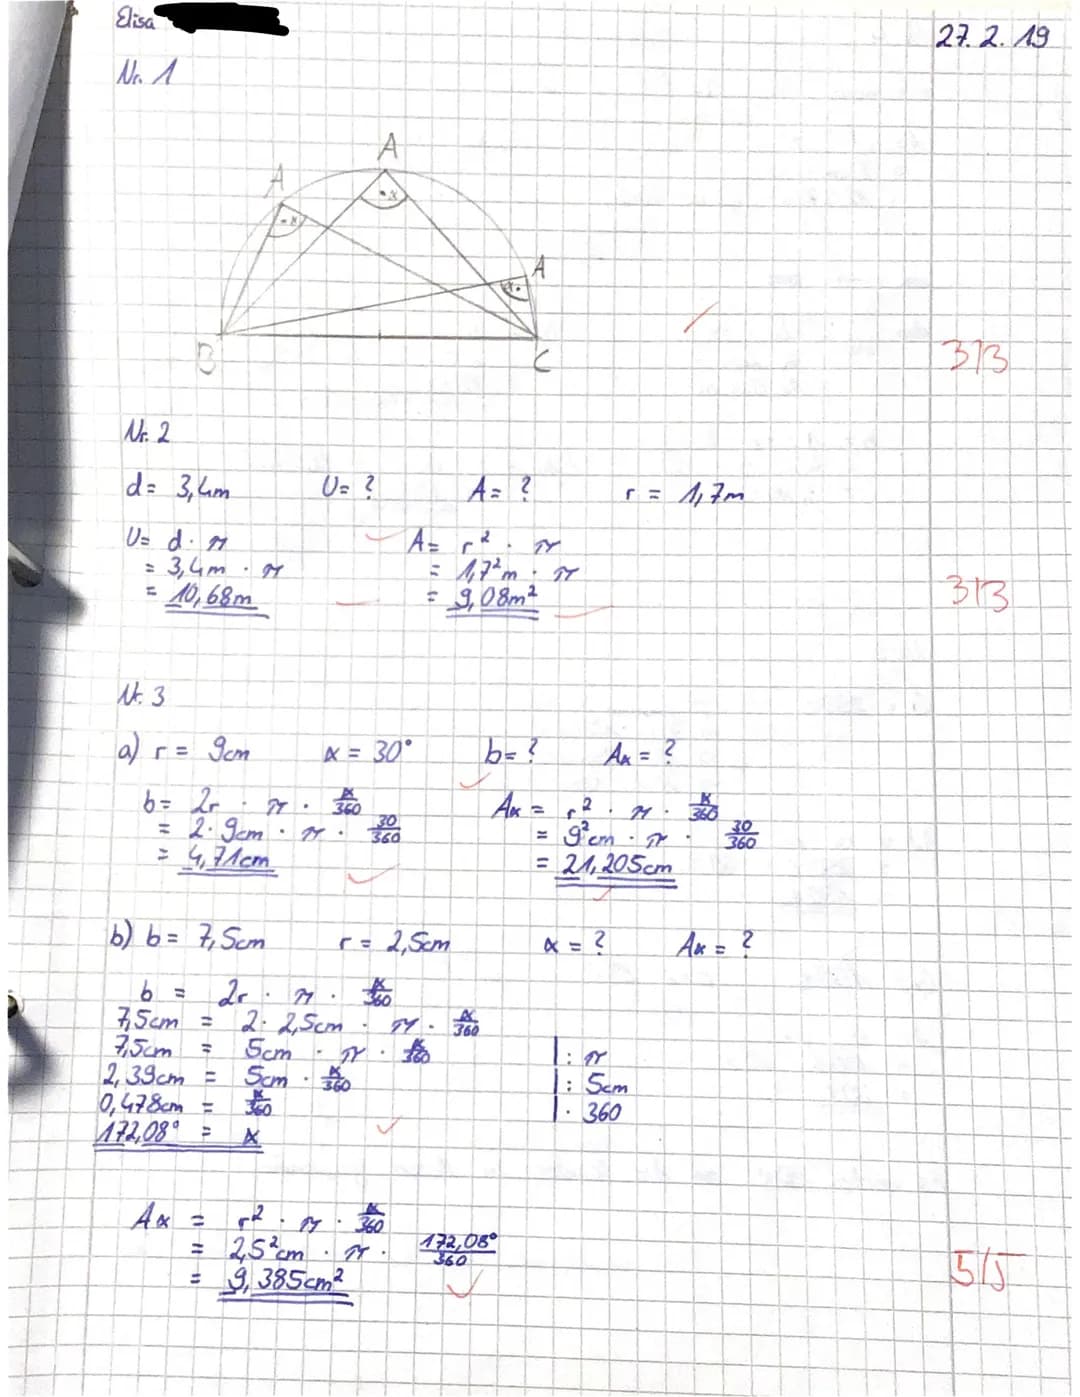 Elisa
27. 2. 19
Nr. 1
A
A
A
α
α
α
B
C
3/3
Nr. 2
d = 3,4m U = ? A = ? r = 1,7m
U = d · π A = r² · π
= 3,4m · π = 1,7²m · π
= 10,68m = 9,08m²
3/3
Nr. 3
a) r = 9cm α = 30° b = ? Aα = ?
b = 2r · π · α/360 Aα = r² · π · α/360
= 2 · 9cm · π · 30/360 = 9²cm · π · 30/360
= 4,71cm = 21,205cm
b) b = 7,5cm r = 2,5cm α = ? Aα = ?
b = 2r · π · α/360
7,5cm = 2 · 2,5cm · π · α/360
7,5cm = 5cm · π · α/360 | : π
2,39cm = 5cm · α/360 | : 5cm
0,478cm = α/360 | · 360
172,08° = α
Aα = r² · π · α/360
= 2,5²cm · π · 172,08°/360
= 9,385cm²
5/5